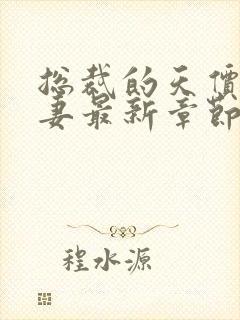 总裁的天價
妻最新章節
程水源